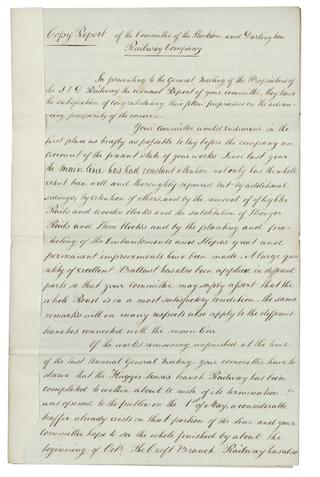 Copy Report of the Committee of the Stockton and Darlington
Railway Company
In presenting to the General Meeting of the Proprietors of
the S & D Railway the annual Report of your committee, they have
the satisfaction of congratulating their fellow proprietors on the advan-
cing prosperity of the concern.
Your Committee would endeavour in the
first place as briefly as possible to lay before the company an
account of the present state of your works Since last year
the main line has had constant attention not only has the whole
extent been well and thoroughly repaired but by additional
sidings, by extention of others, and by the removal of lighter
Rails and wooden blocks and the substitution of stronger
Rails and stone blocks and by the planting and pro-
tecting of the Embankments and Slopes great and
permanent improvements have been made. A large quan-
tity of excellent Ballast has also been applied in different
parts so that your Committee may safely assert that the
whole Road is in a most satisfactory condition. the same
remarks will in many respects also apply to the different
branches connected with the main line
Of the works remaining unfinished at the time
of the last Annual General Meeting. Your committee have to
observe that the Haggerleases branch Railway has been
completed to within about a mile of its termination &
was opened to the public on the 1st of May, a considerable
traffic already exists on that portion of the line and your
Committee hope to see the whole finished by about the
beginning of Octr. The Croft Branch Railway has also